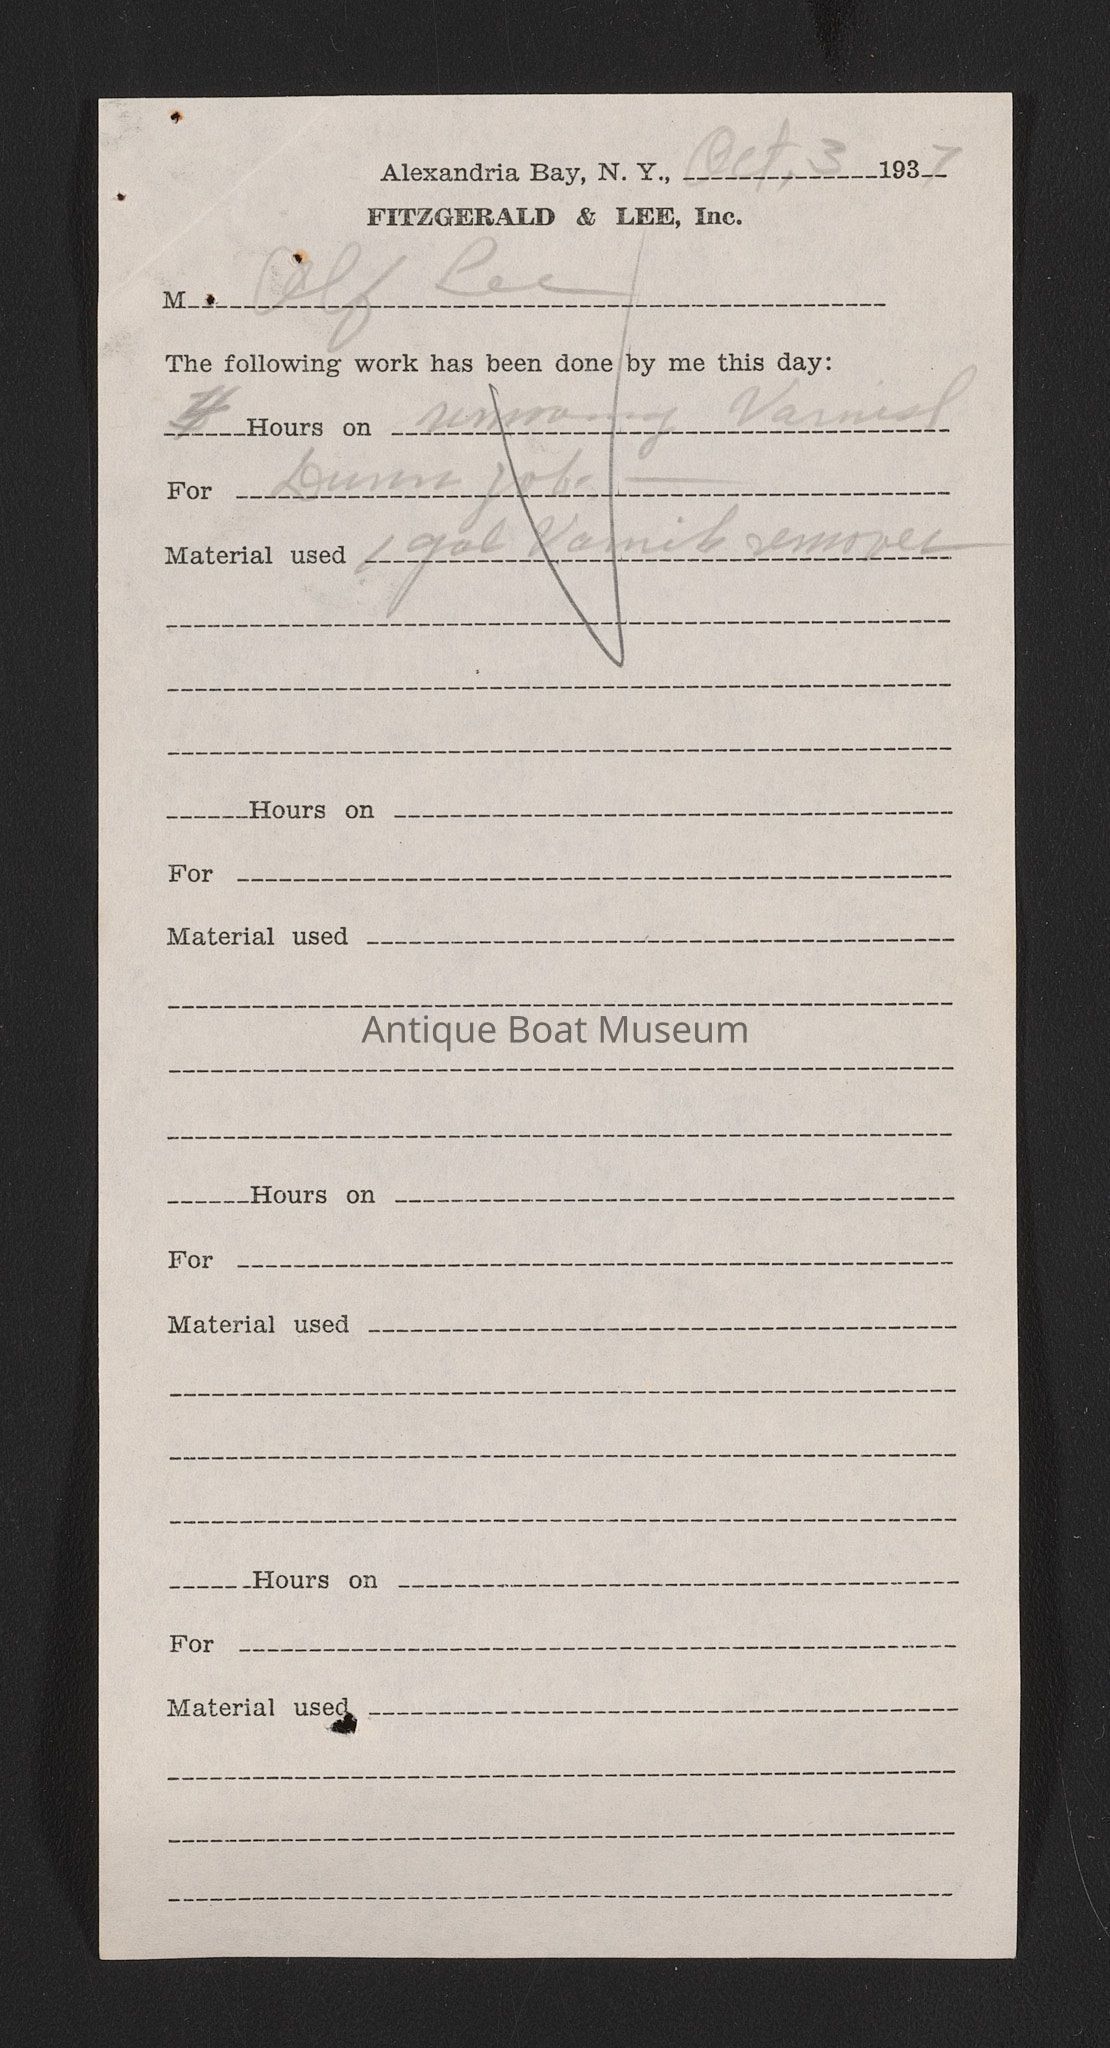 Alexandria Bay, N. Y., Oct, 3 1937
FITZGERALD & LEE, Inc.
M Alf Lee
The following work has been done by me this day:
Hours on removing Varnish
For Dunn job.
Material used 1 gal Varnish remover
Hours on
For
Material used
Antique Boat Museum
Hours on
For
Material used
Hours on
For
Material used